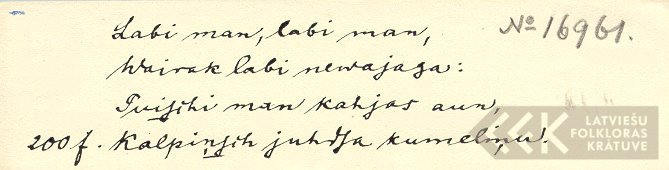 Labi man, labi man, № 16961.
Wairak labi newajaga:
Puischi man kahjas aun,
200f. Kalpiņsch juhdsa kumeliņu.
LATVIEŠU
FOLKLORAS
KRĀTUVE